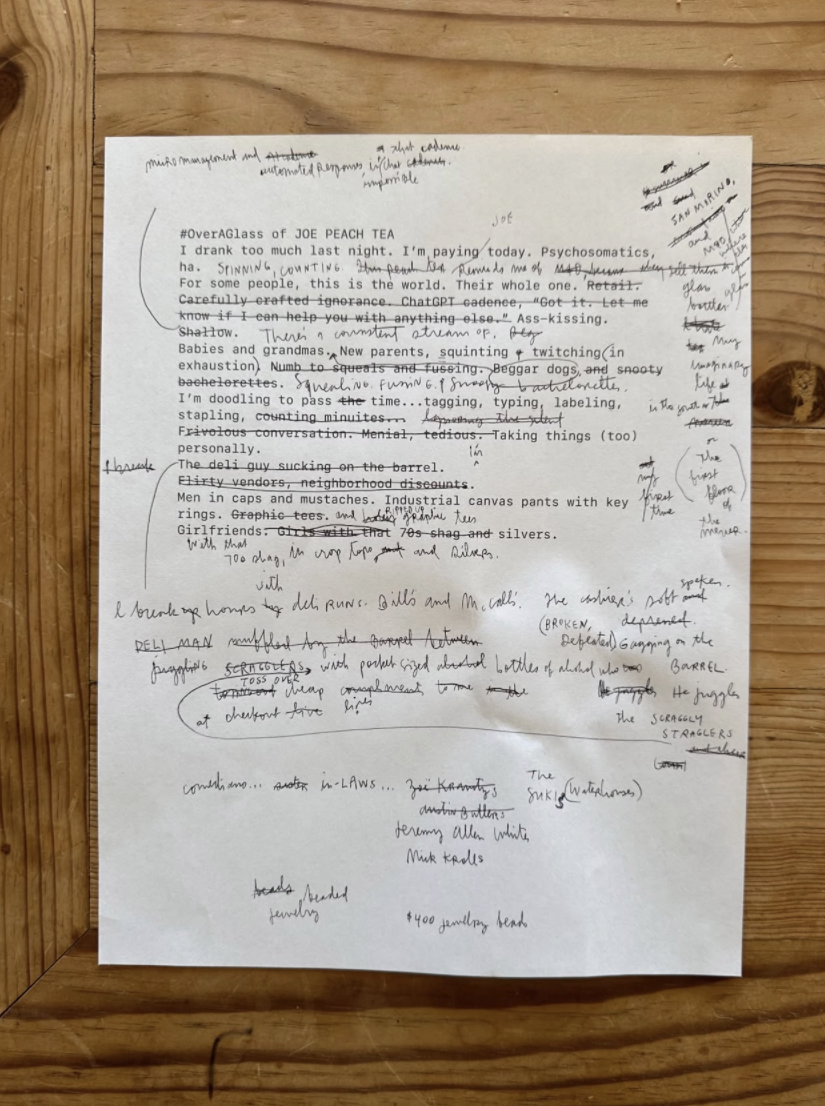 micromanagement and
automated responses, is that
a that cadence.
impossible
JOE
#OverAGlass of JOE PEACH TEA
I drank too much last night. I'm paying today. Psychosomatics,
ha. SPINNING, COUNTING. This peach tea reminds me of
For some people, this is the world. Their whole one. Retail.
Carefully crafted ignorance. ChatGPT cadence, "Got it. Let me
know if I can help you with anything else." Ass-kissing.
Shallow. There's a consistent stream of.
Babies and grandmas. New parents, squinting + twitching (in
exhaustion) Numb to squeals and fussing. Beggar dogs, and snooty
bachelorettes. Squealing. Fussing. & Snoopy bachelorettes.
I'm doodling to pass the time...tagging, typing, labeling,
stapling, counting minuites... Ignoring the silent
Frivolous conversation. Menial, tedious. Taking things (too)
personally.
The deli guy sucking on the barrel.
Flirty vendors, neighborhood discounts.
Men in caps and mustaches. Industrial canvas pants with key
rings. Graphic tees. and RIPPED UP graphic tees
Girlfriends: Girls with that 70s shag and silvers.
With that
70s shag, in crop tops, and silvers.
break
SAN MARINO,
and
glass
bottles
My
imaginary
life
in the south
or
The
first
floor
of
the
manor.
my
first
time
with
I break up hours by deli runs. Bill's and McCall's. The cashier's soft and
spoken.
(BROKEN, depressed.
Defeated) Gagging on the
BARREL.
DELI MAN muffled by the Barrel between
juggling SCRAGGLERS, with pocket sized alcohol bottles of alcohol who
TOSS OVER
cheap compliments to me in the
at checkout live lines
He juggles He juggles
The SCRAGGLY
STRAGLERS
sister in-LAWS... Zoë Kravitz's
austin Butlers
Jeremy Allen White
Nick Krolls
The
SUKIs (Waterhouses)
beads beaded
jewelry
$400 jewelry beads